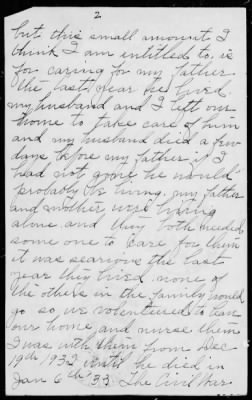 2
but this small amount I
think I am entitled to, is
for caring for my father
the last year he lived
my husband and I left our
home to take care of him
and my husband died a few
days before my father if I
had not gone he would
probably be living. my father
and mother were living
alone and they both needed
some one to care for them
it was the last
year they lived none of
the others in the family would
go so we volenteered to leave
our home and nurse them
I was with them from Dec
19th 1932 until he died in
Jan 6th 33. The Civil War